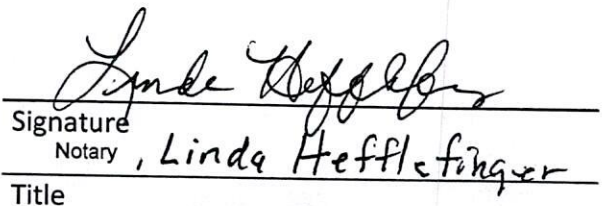 Linda Hefflefinger
Signature
Notary , Linda Hefflefinger
Title